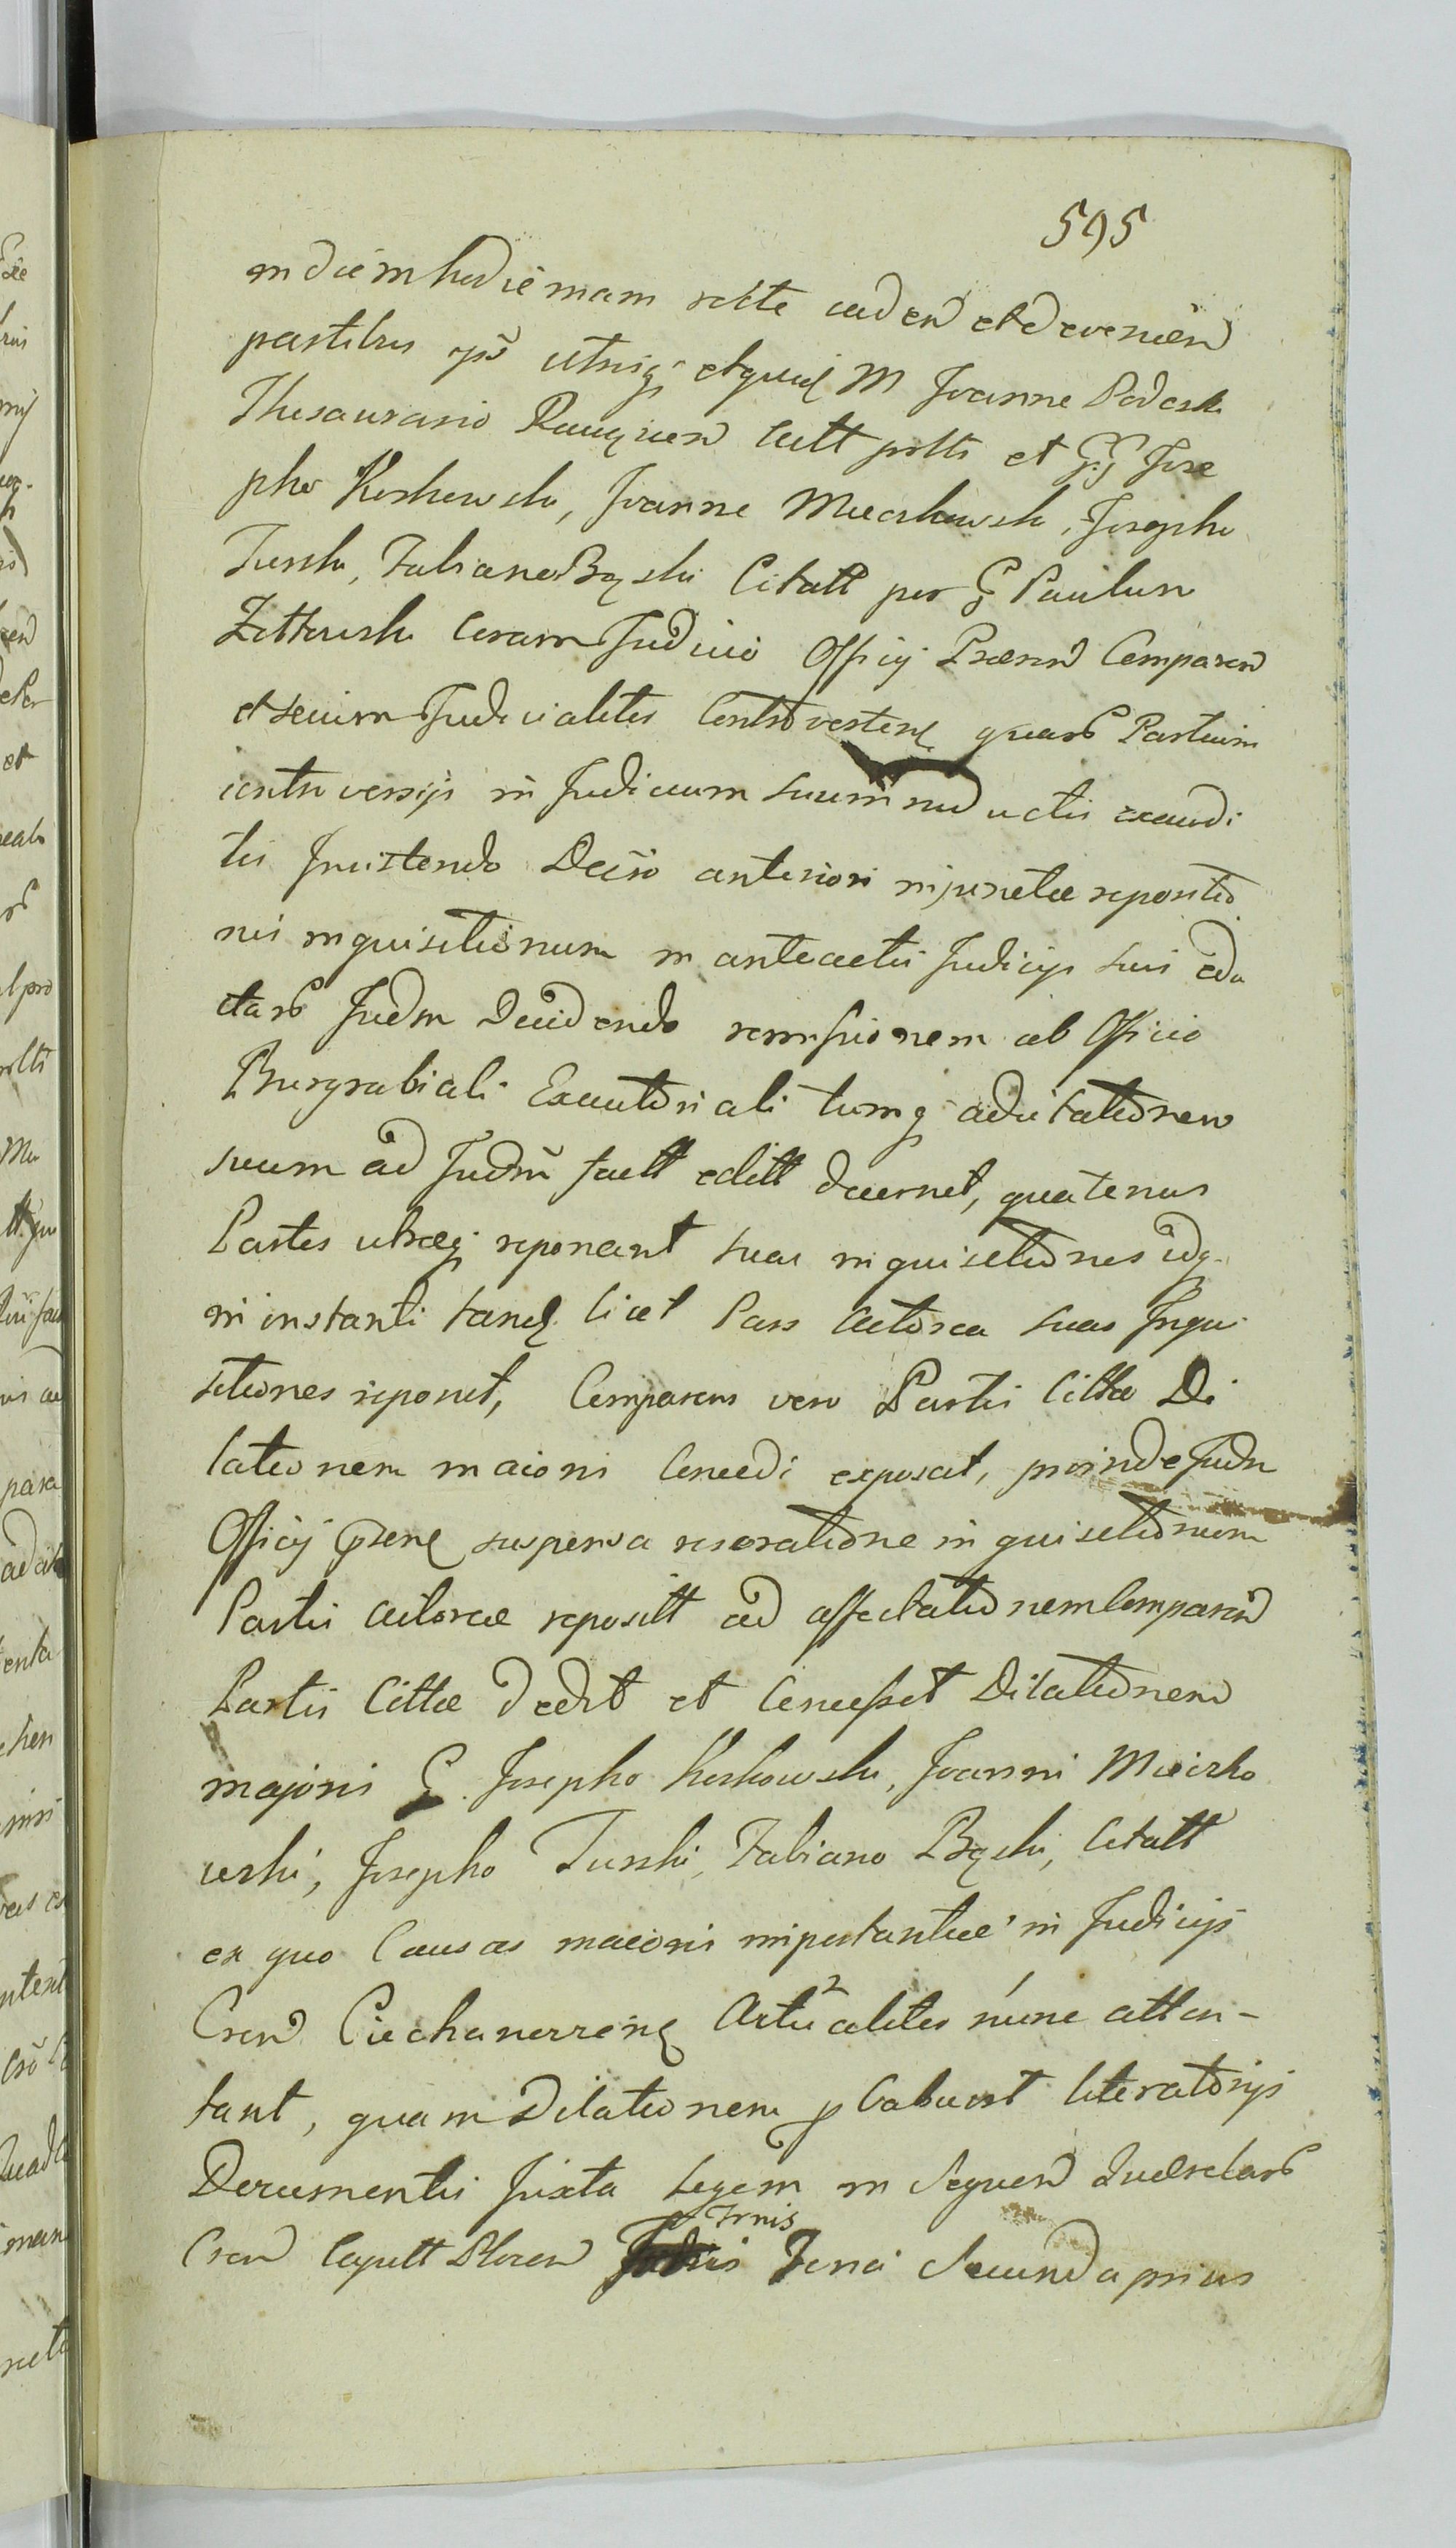 595
in diem hodiernam recte caden et devenien
partibus ips utrisq et quid M Joanne Podoski
Thesaurario Racjonen Actt prtti et GG Jose
pho Koskowski, Joanne Mieczkowski, Josepho
Turski, Fabiano Bąski Citatt per G Paulum
Zottowski Coram Judicio Officij Praesen Comparen
et secum Judicialiter Controverten quarb Partium
controversijs in Judicium suum inductis exaudi
tis Insistendo Deciso anteriori injunctae repositio
nis inquisitionum in anteactis Judicijs sui edu
ctarb Judm Decidendo remissionem ab Officio
Burgrabiali Executoriali tumq adcitationem
suum ad Judm factt editt decernit, quatenus
Partes utraeq reponant suas inquisitiones idq
in instanti tandq licet Pars Actorea suas Inqui
sitiones reponit, Comparens vero Partis Cittae Di
lationem maioris Concedi exposcit, proinde Judm
Officij psens suspensa reseratione inquisitionum
Partis Actoreae repositt ad affectationem Comparen
Partis Cittae dedit et Concessit Dilationem
majoris G. Josepho Koskowski, Joanni Mieczko
wski, Josepho Turski, Fabiano Bąski, Citatt
ex quo Causas maioris importantiae in Judicijs
Cren Ciechanoviens Actualiter nunc atten-
tant, quam Dilationem p Cabuert literatorijs
Documentis Juxta Legem in Sequen Querelarb
Cren Capitt Plocen Trnis Feria Secunda prius